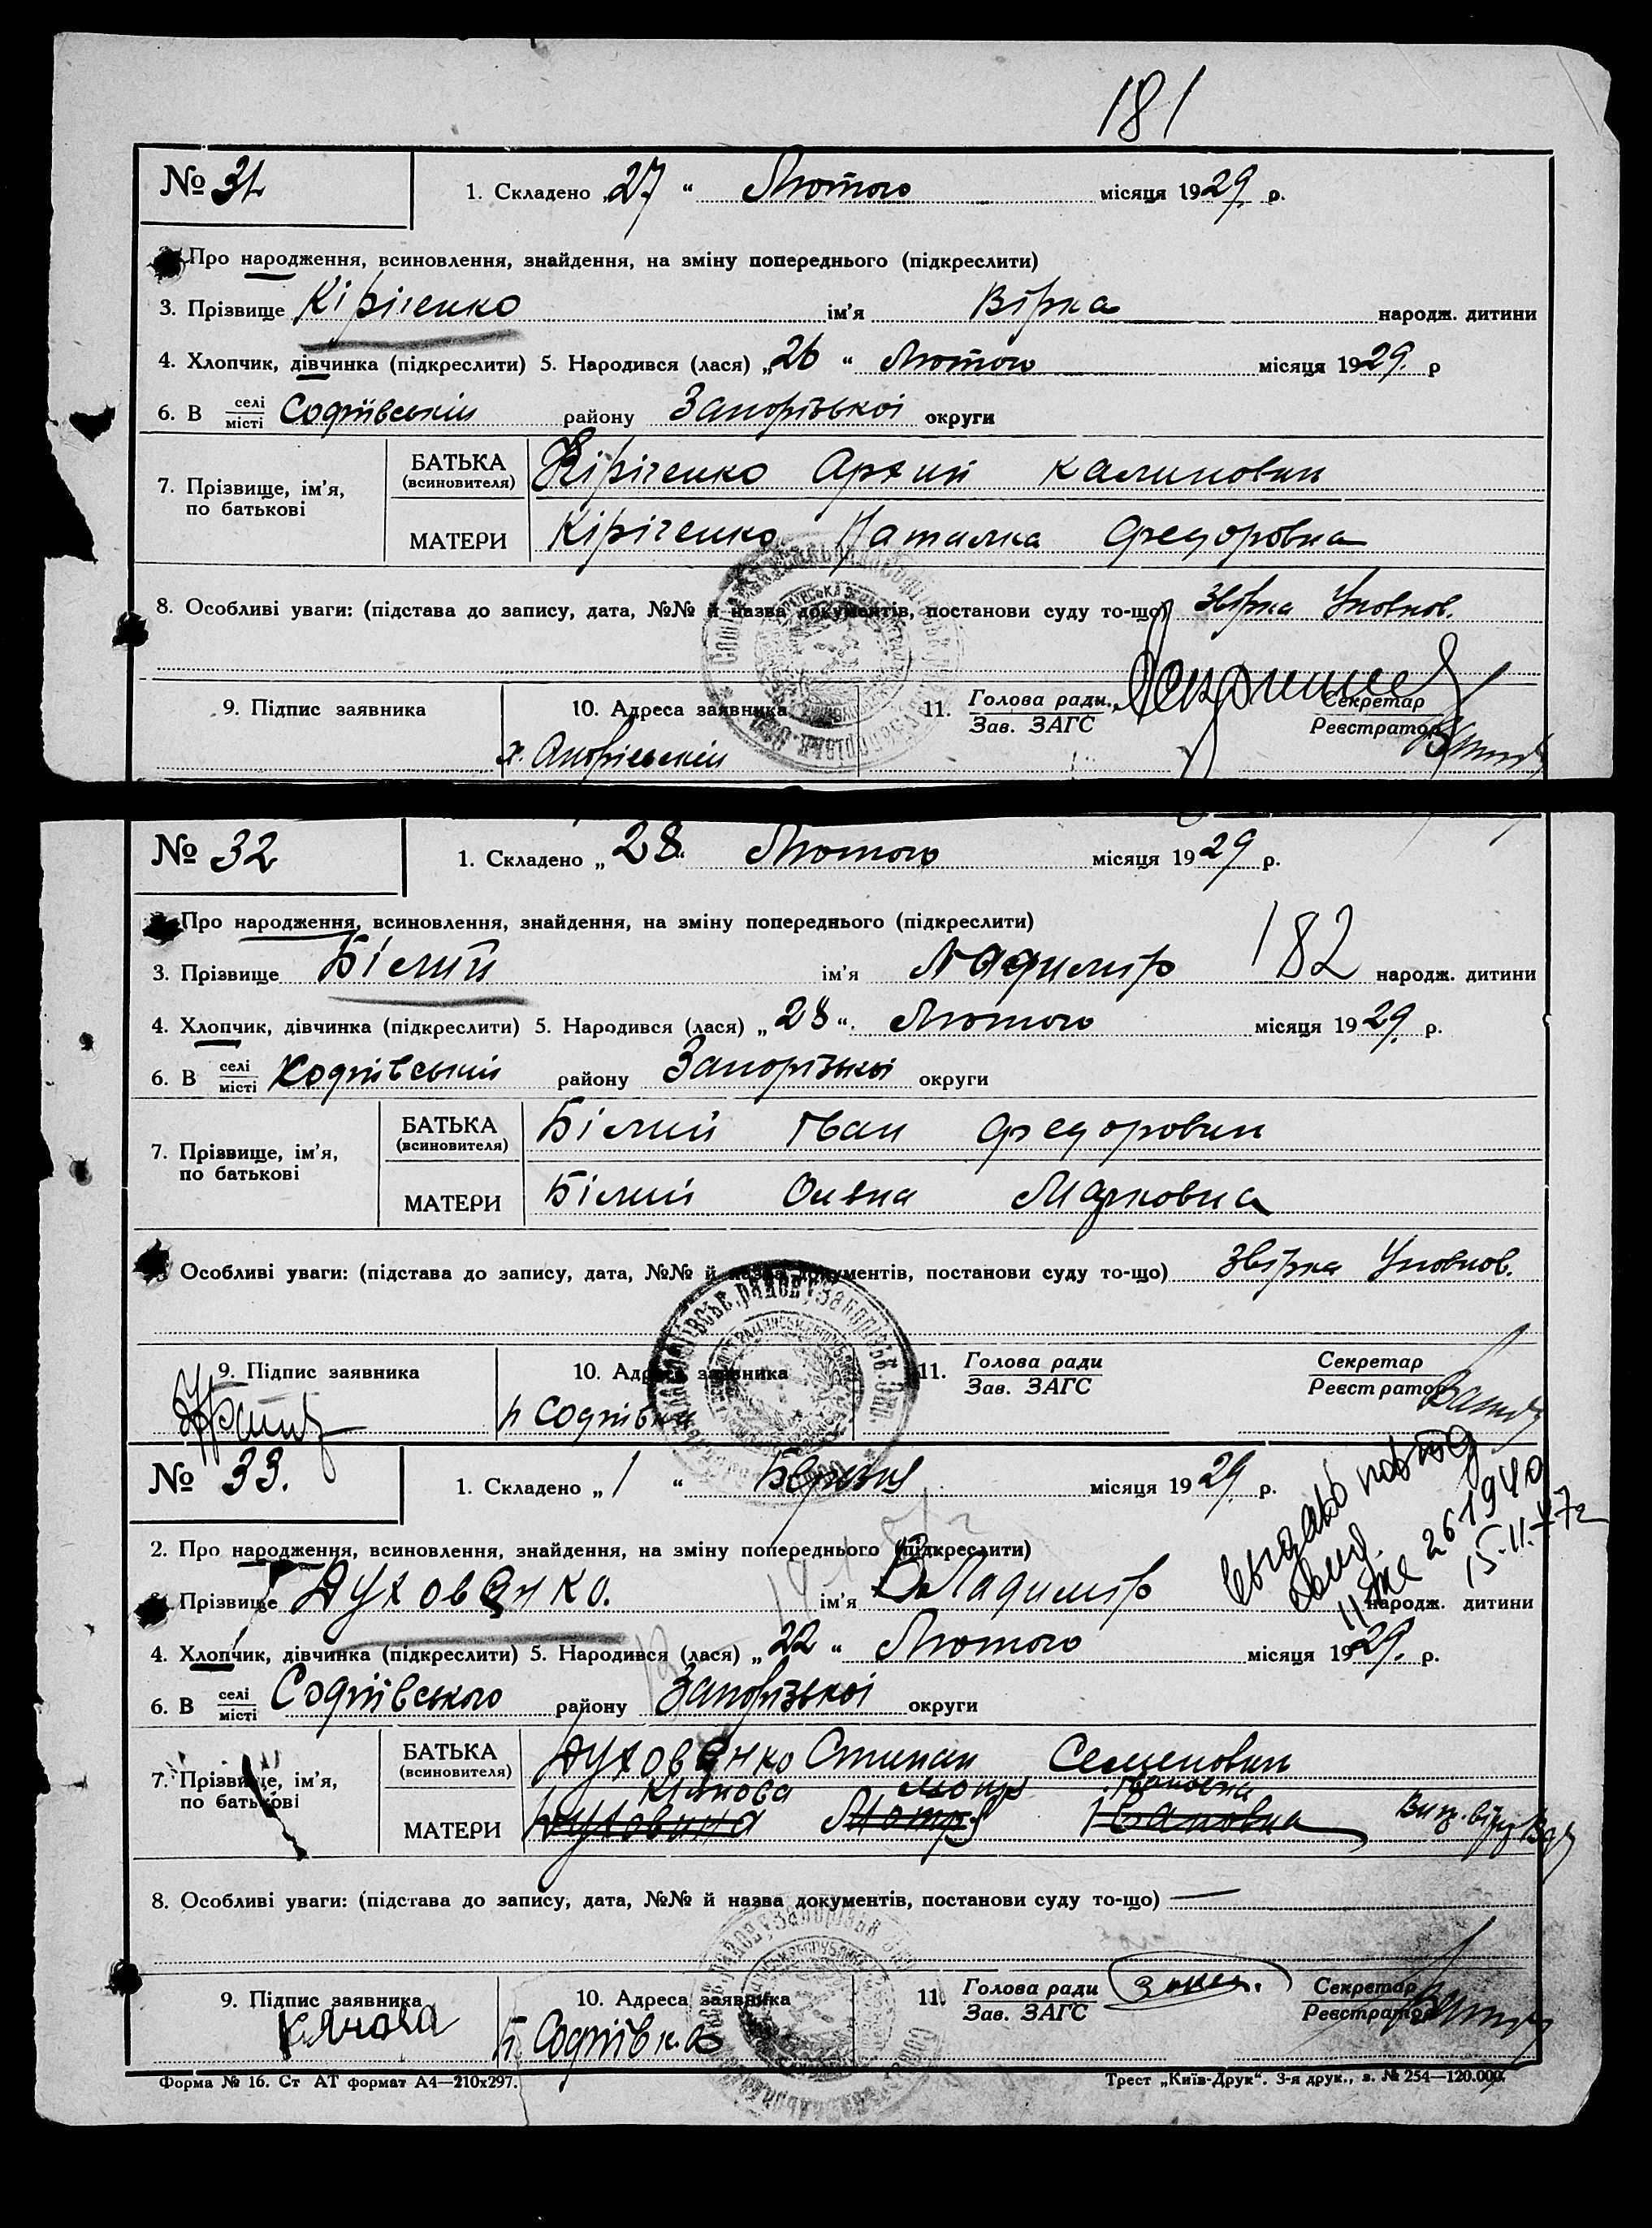 181
№ 31 1. Складено „27“ Лютого місяця 1929 р.
Про народження, всиновлення, знайдення, на зміну попереднього (підкреслити)
3. Прізвище Кіріченко ім'я Вірка народж. дитини
4. Хлопчик, дівчинка (підкреслити) 5. Народився (лася) „26“ Лютого місяця 1929. р
6. В селі місті Софіївський району Запорізької округи
7. Прізвище, ім'я, по батькові БАТЬКА (всиновителя) Кіріченко Архип Калинович
МАТЕРИ Кіріченко Наталка Федоровна
8. Особливі уваги: (підстава до запису, дата, №№ й назва документів, постанови суду то-що) Звірка Уповнов.
9. Підпис заявника 10. Адреса заявника 11. Голова ради Зав. ЗАГС Секретар Реєстратор
х.
№ 32 1. Складено „28“ Лютого місяця 1929 р.
Про народження, всиновлення, знайдення, на зміну попереднього (підкреслити)
3. Прізвище Білий ім'я Ладимір 182 народж. дитини
4. Хлопчик, дівчинка (підкреслити) 5. Народився (лася) „28“. Лютого місяця 1929. р.
6. В селі місті Софіївський району Запорізької округи
7. Прізвище, ім'я, по батькові БАТЬКА (всиновителя) Білий Іван Федорович
МАТЕРИ Білий Олена Марковна
Особливі уваги: (підстава до запису, дата, №№ й назва документів, постанови суду то-що) Звірка Уповнов.
9. Підпис заявника 10. Адреса заявника 11. Голова ради Зав. ЗАГС Секретар Реєстратор
п Софіївка
№ 33. 1. Складено „1“ Березня місяця 1929 р.
2. Про народження, всиновлення, знайдення, на зміну попереднього (підкреслити)
Прізвище Духовенко. ім'я Владимір народж. дитини
выдано повтор
свид.
261940
15.II.47г
4. Хлопчик, дівчинка (підкреслити) 5. Народився (лася) „22“ Лютого місяця 1929. р.
6. В селі місті Софіївського району Запорізької округи
7. Прізвище, ім'я, по батькові БАТЬКА (всиновителя) Духовенко Степан Семенович
Кіянова Мотря Івановна
МАТЕРИ Мотря Івановна
8. Особливі уваги: (підстава до запису, дата, №№ й назва документів, постанови суду то-що) —
9. Підпис заявника 10. Адреса заявника 11. Голова ради Зав. ЗАГС Секретар Реєстратор
Кіянова п. Софіївка
Форма № 16. Ст АТ формат А4—210х297. Трест „Київ-Друк“. 3-я друк., з. № 254—120.000.